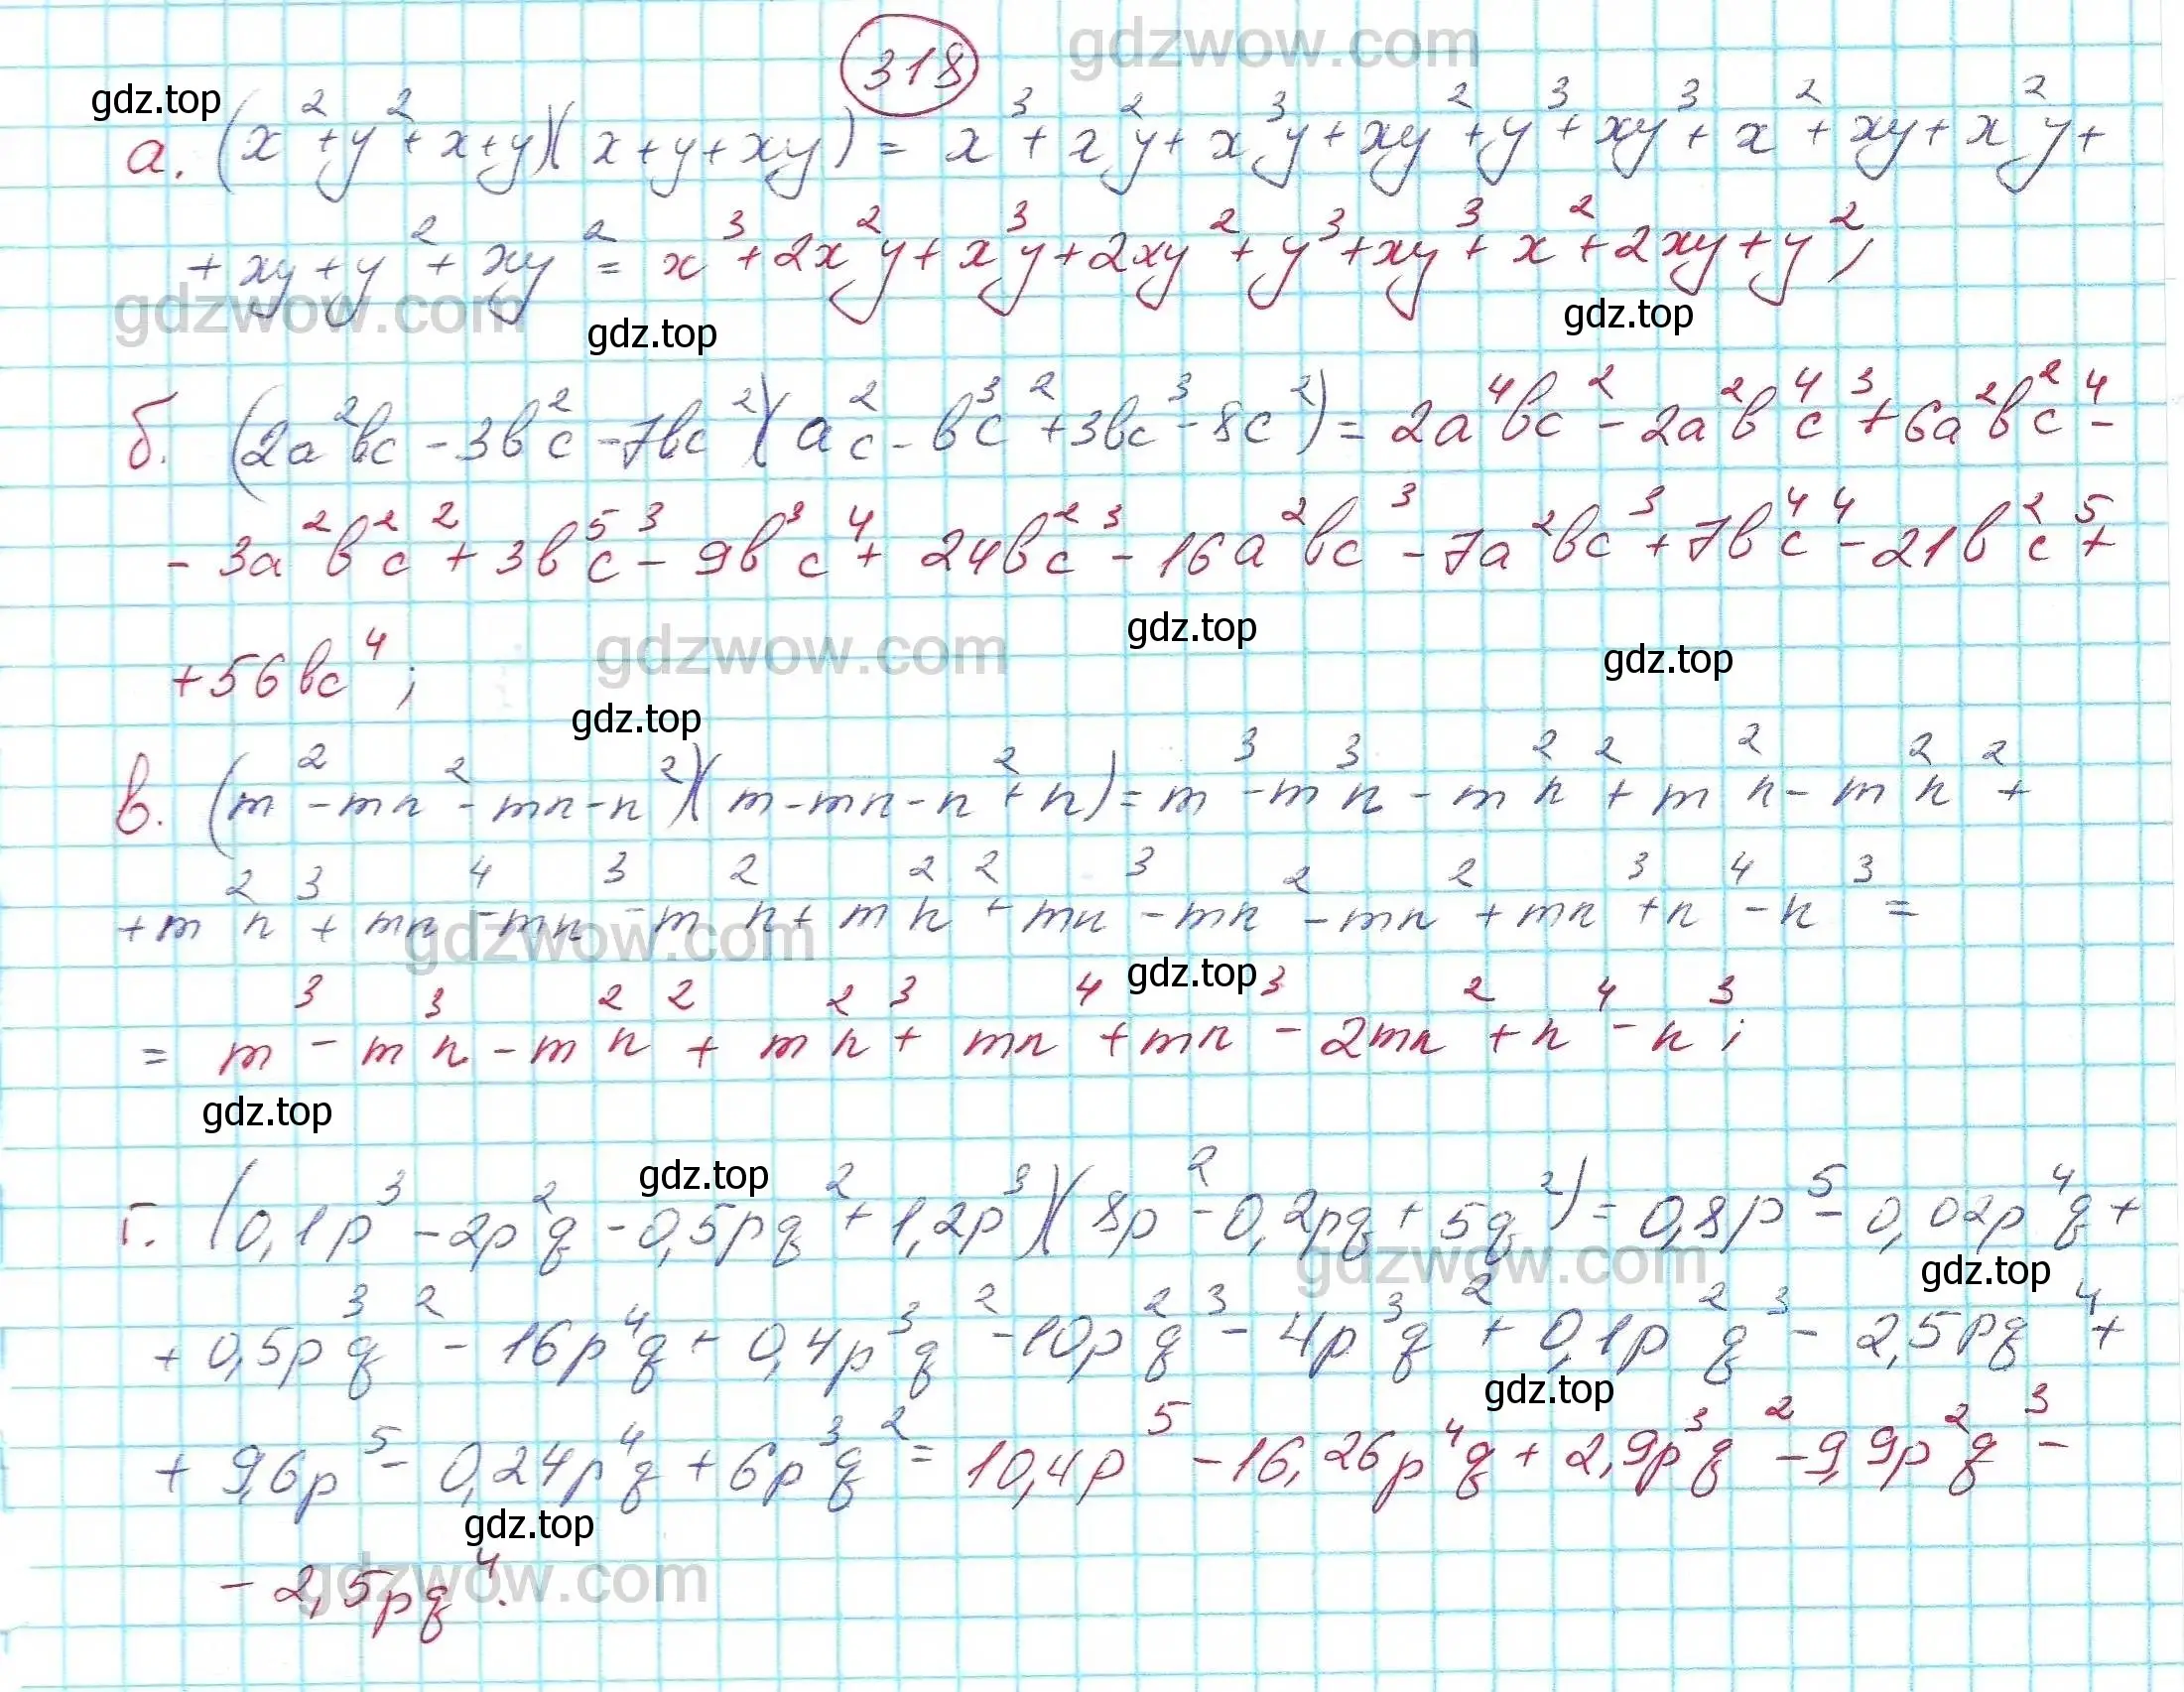 318
gdzwow.com
gdz.top
а. (x²+y²+x+y)(x+y+xy) = x³+x²y+x³y+xy²+y³+xy³+x²+xy+x²y+
+xy+y²+xy² = x³+2x²y+x³y+2xy²+y³+xy³+x²+2xy+y²;
gdzwow.com
gdz.top
gdz.top
б. (2a²bc-3b²c-7bc²)(a²c-b³c²+3bc³-8c²) = 2a⁴bc²-2a²b⁴c³+6a²b²c⁴-
-3a²b²c²+3b⁵c³-9b³c⁴+24b²c³-16a²bc³-7a²bc³+7b⁴c⁴-21b²c⁵+
gdz.top
+56bc⁴;
gdzwow.com
gdz.top
gdz.top
в. (m²-mn²-mn-n²)(m-mn-n²+n) = m³-m³n-m²n²+m²n-m²n²+
+m²n³+mn⁴-mn³-m²n+m²n²+mn³-mn²-mn²+mn³+n⁴-n³ =
gdzwow.com
gdz.top
= m³-m³n-m²n²+m²n³+mn⁴+mn³-2mn²+n⁴-n³;
gdz.top
gdz.top
г. (0,1p³-2p²q-0,5pq²+1,2p³)(8p²-0,2pq+5q²) = 0,8p⁵-0,02p⁴q+
gdzwow.com
gdz.top
+0,5p³q²-16p⁴q+0,4p³q²-10p²q³-4p³q²+0,1p²q³-2,5pq⁴+
gdz.top
+9,6p⁵-0,24p⁴q+6p³q² = 10,4p⁵-16,26p⁴q+2,9p³q²-9,9p²q³-
gdz.top
-2,5pq⁴.
gdzwow.com